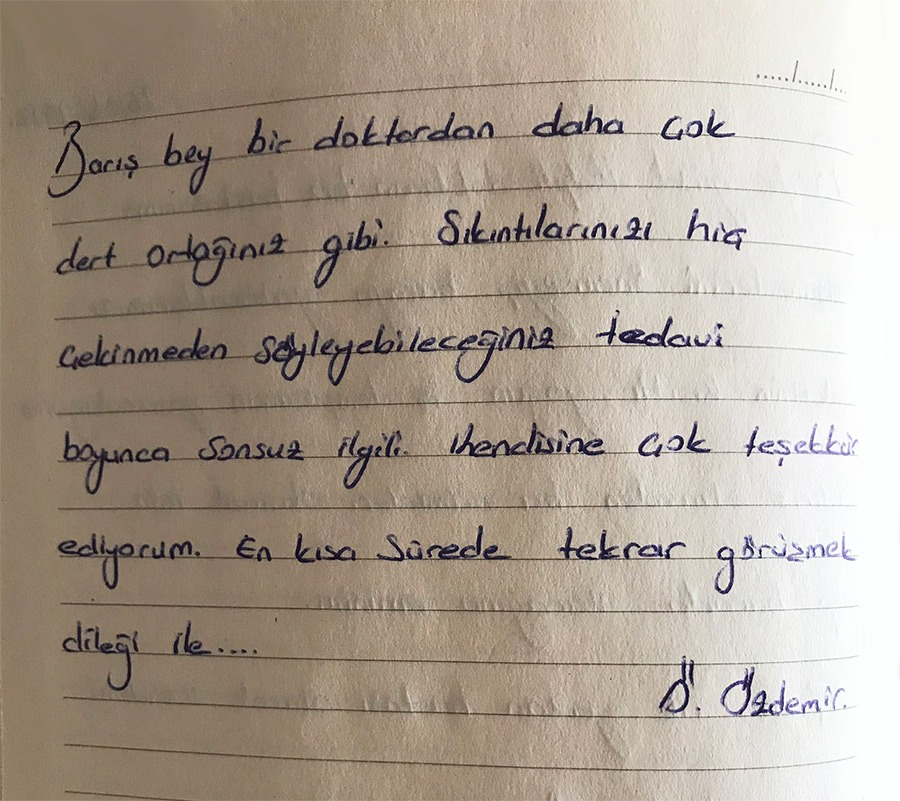 ...../...../...
Barış bey bir doktordan daha çok
dert ortağınız gibi. Sıkıntılarınızı hiç
çekinmeden söyleyebileceğiniz tedavi
boyunca sonsuz ilgili. Kendisine çok teşekkür
ediyorum. En kısa sürede tekrar görüşmek
dileği ile....
Ö. Özdemir.